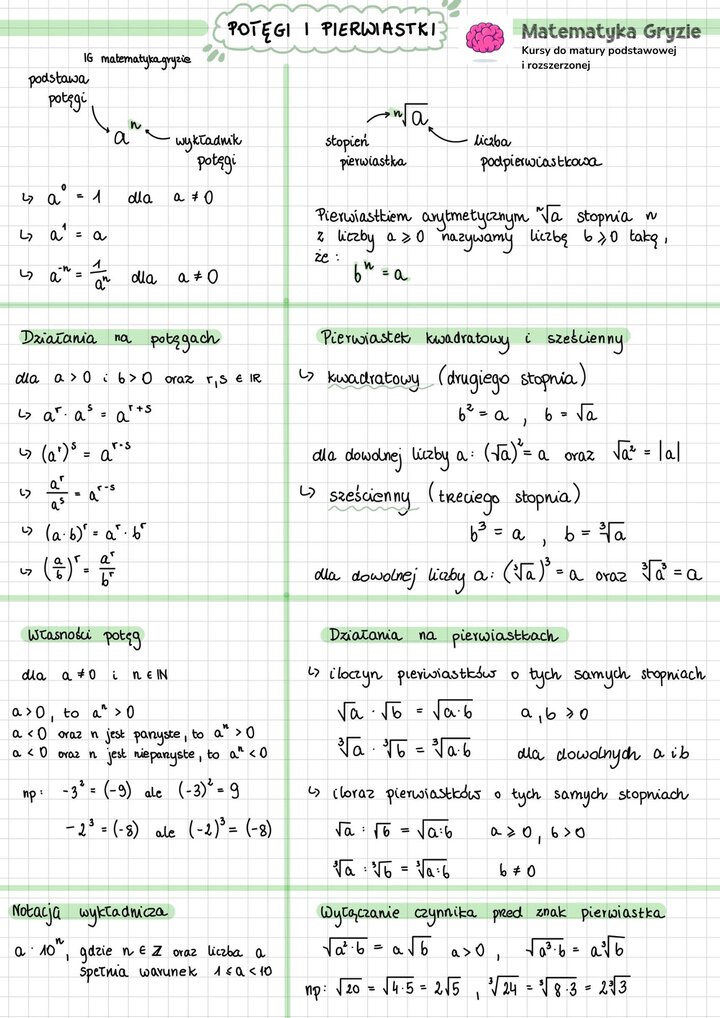 POTĘGI I PIERWIASTKI
Matematyka Gryzie
Kursy do matury podstawowej
i rozszerzonej
IG matematyka.gryzie
podstawa
potęgi
aⁿ
wykładnik
potęgi
↳ a⁰ = 1 dla a ≠ 0
↳ a¹ = a
↳ a⁻ⁿ = 1/aⁿ dla a ≠ 0
ⁿ√a
stopień
pierwiastka
liczba
podpierwiastkowa
Pierwiastkiem arytmetycznym ⁿ√a stopnia n
z liczby a ⩾ 0 nazywamy liczbę b ⩾ 0 taką,
że:
bⁿ = a
Działania na potęgach
dla a > 0 i b > 0 oraz r,s ∈ IR
↳ aʳ · aˢ = aʳ⁺ˢ
↳ (aʳ)ˢ = a^(r·s)
↳ aʳ/aˢ = aʳ⁻ˢ
↳ (a·b)ʳ = aʳ · bʳ
↳ (a/b)ʳ = aʳ/bʳ
Pierwiastek kwadratowy i sześcienny
↳ kwadratowy (drugiego stopnia)
b² = a , b = √a
dla dowolnej liczby a: (√a)² = a oraz √a² = |a|
↳ sześcienny (trzeciego stopnia)
b³ = a , b = ³√a
dla dowolnej liczby a: (³√a)³ = a oraz ³√a³ = a
Własności potęg
dla a ≠ 0 i n ∈ IN
a > 0, to aⁿ > 0
a < 0 oraz n jest parzyste, to aⁿ > 0
a < 0 oraz n jest nieparzyste, to aⁿ < 0
np: -3² = (-9) ale (-3)² = 9
-2³ = (-8) ale (-2)³ = (-8)
Działania na pierwiastkach
↳ iloczyn pierwiastków o tych samych stopniach
√a · √b = √a·b a,b ⩾ 0
³√a · ³√b = ³√a·b dla dowolnych a i b
↳ iloraz pierwiastków o tych samych stopniach
√a : √b = √a:b a ⩾ 0, b > 0
³√a : ³√b = ³√a:b b ≠ 0
Notacja wykładnicza
a · 10ⁿ, gdzie n ∈ Z oraz liczba a
spełnia warunek 1 ≤ a < 10
Wyłączanie czynnika przed znak pierwiastka
√a²·b = a√b a > 0 , ³√a³·b = a³√b
np: √20 = √4·5 = 2√5 , ³√24 = ³√8·3 = 2³√3